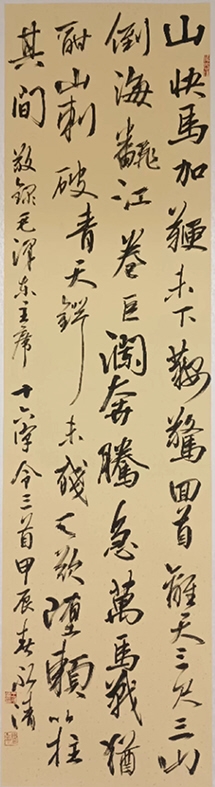 山快馬加鞭未下鞍驚回首離天三尺三山
倒海飜江卷巨瀾奔騰急萬馬戰猶
酣山刺破青天鍔未殘天欲墮賴以柱
其間 敬錄毛澤東主席十六字令三首甲辰春永清